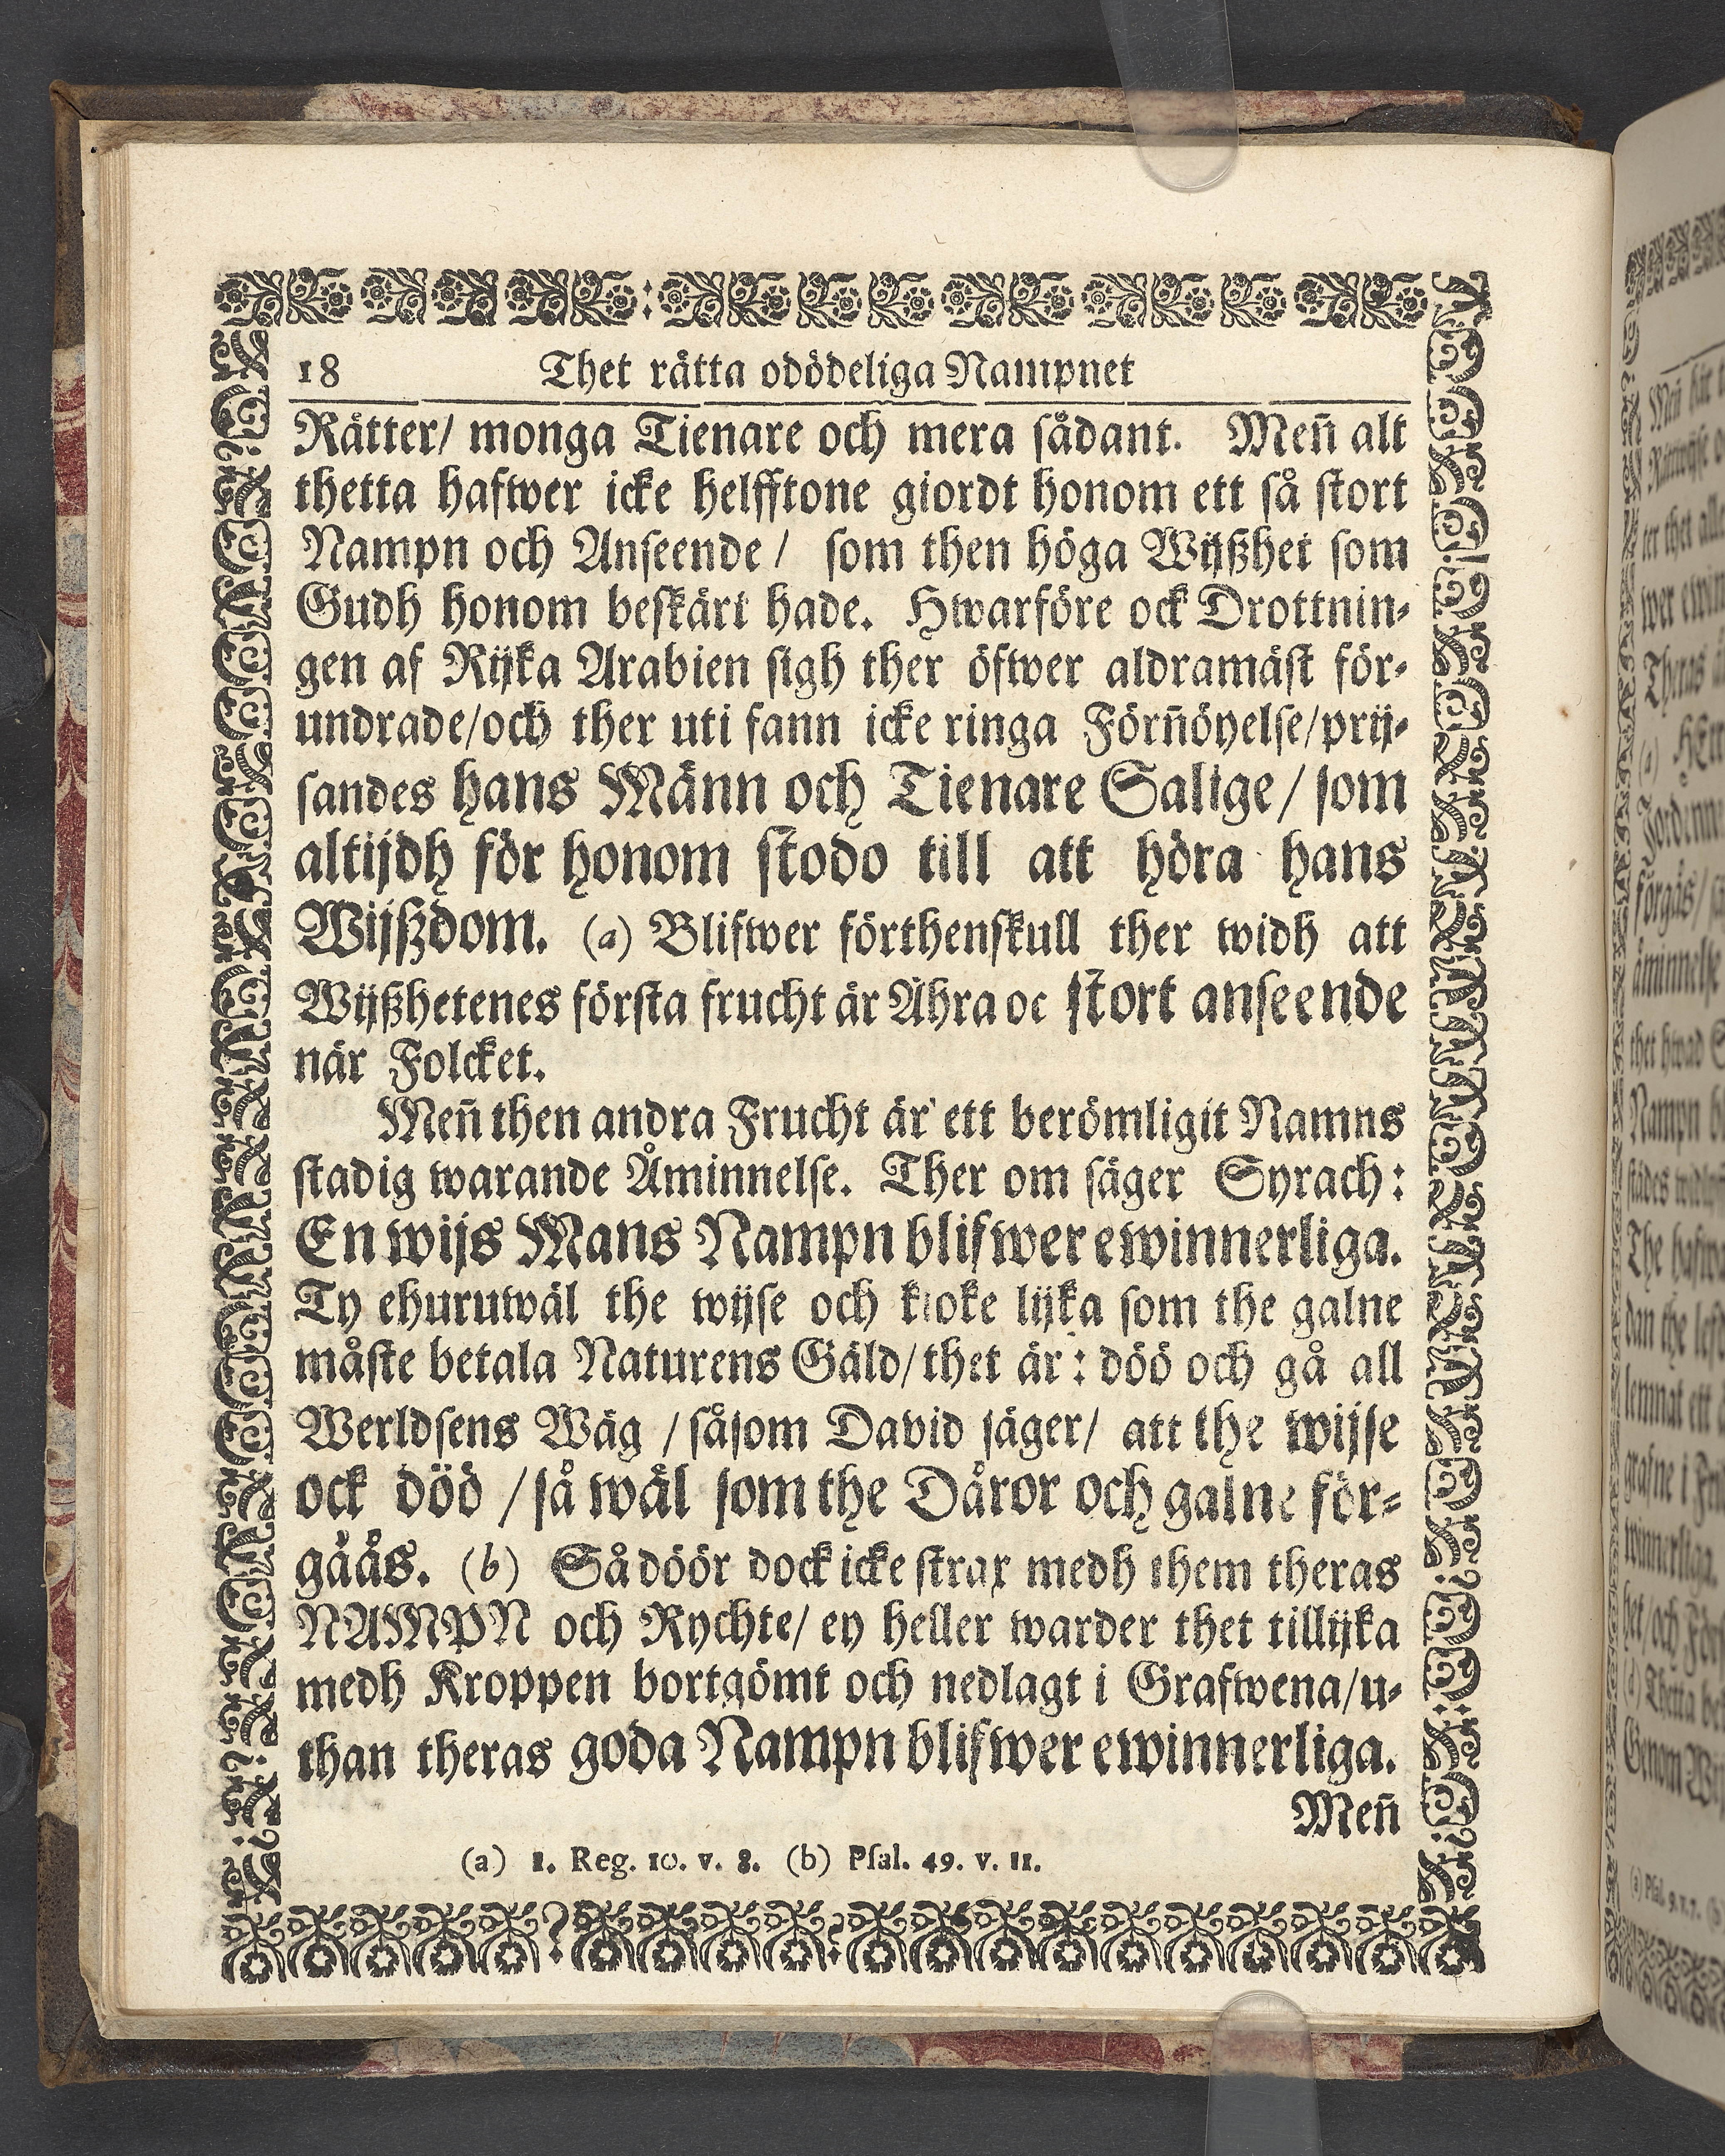 18 Thet rätta odödeliga Nampnet
Rätter/ monga Tienare och mera sådant. Men̄ alt
thetta hafwer icke helfftone giordt honom ett så stort
Nampn och Anseende / som then höga Wijßhet som
Gudh honom beskärt hade. Hwarföre ock Drottnin-
gen af Rijka Arabien sigh ther öfwer aldramäst för-
undrade/och ther uti fann icke ringa Förn̄öyelse/prij-
sandes hans Männ och Tienare Salige/ som
altijdh för honom stodo till att höra hans
Wijßdom. (a) Blifwer förthenskull ther widh att
Wijßhetenes första frucht är Ähra oc stort anseende
när Folcket.
Men̄ then andra Frucht är ett berömligit Namns
stadig warande Åminnelse. Ther om säger Syrach:
En wijs Mans Nampn blifwer ewinnerliga.
Ty ehuruwäl the wijse och kloke lijka som the galne
måste betala Naturens Gäld/thet är: döö och gå all
Werldsens Wäg /såsom David säger/ att the wijse
ock döö /så wäl som the Dåror och galne för-
gåås. (b) Så döör dock icke strax medh them theras
NAMPN och Rychte/ ey heller warder thet tillijka
medh Kroppen bortgömt och nedlagt i Grafwena/u-
than theras goda Nampn blifwer ewinnerliga.
Men̄
(a) 1. Reg. 10. v. 8. (b) Psal. 49. v. 11.